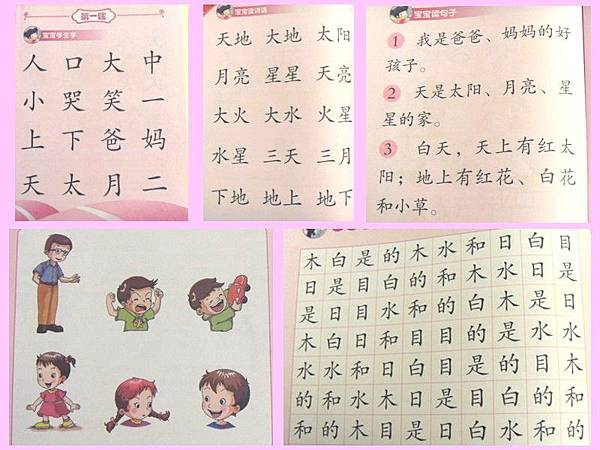 第一课
宝宝学生字
人 口 大 中
小 哭 笑 一
上 下 爸 妈
天 太 月 二
宝宝读词语
天地 大地 太阳
月亮 星星 天亮
大火 大水 火星
水星 三天 三月
下地 地上 地下
宝宝读句子
1 我是爸爸、妈妈的好
孩子。
2 天是太阳、月亮、星
星的家。
3 白天，天上有红太
阳；地上有红花、白花
和小草。
木 白 是 的 木 水 和 日 白 目
日 是 目 白 的 和 木 水 日 是
是 日 目 水 和 的 白 木 是 日
木 白 日 和 目 目 的 是 水 水
水 水 和 日 白 目 是 的 目 木
的 和 水 木 日 是 目 白 的 和
和 的 木 目 是 日 白 水 和 的